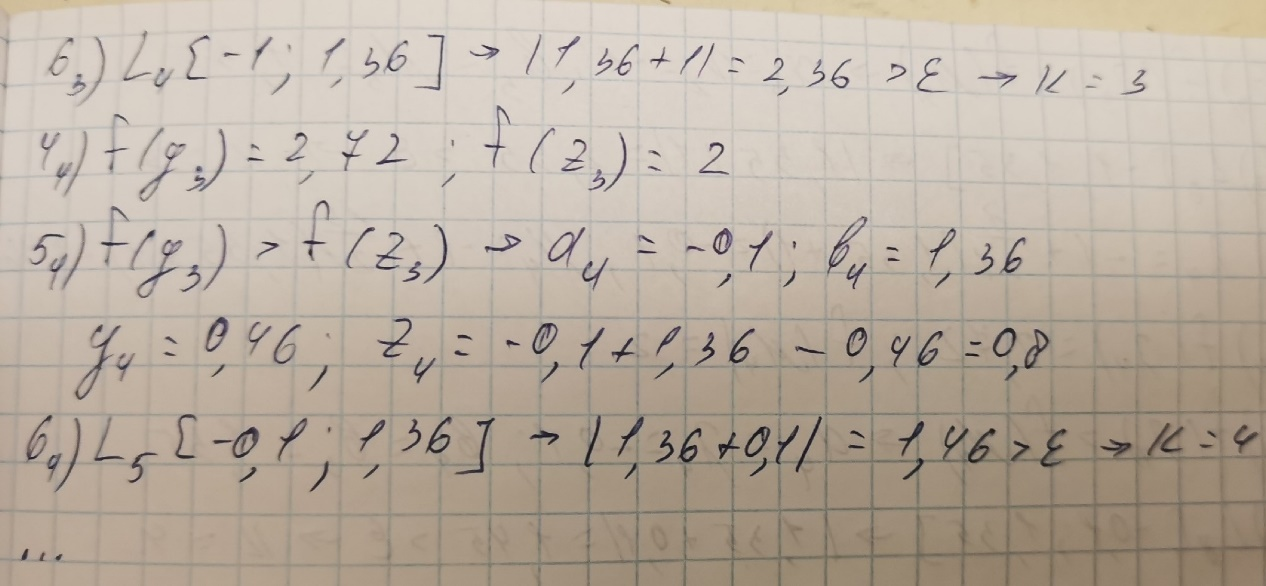 6₃) L₄ [-1; 1,36] → |1,36+1| = 2,36 > ε → K = 3
4₄) f(y₃) = 2,72 ; f(z₃) = 2
5₄) f(y₃) > f(z₃) → a₄ = -0,1; b₄ = 1,36
y₄ = 0,46; z₄ = -0,1+1,36 - 0,46 = 0,8
6₄) L₅ [-0,1; 1,36] → |1,36+0,1| = 1,46 > ε → K = 4
...